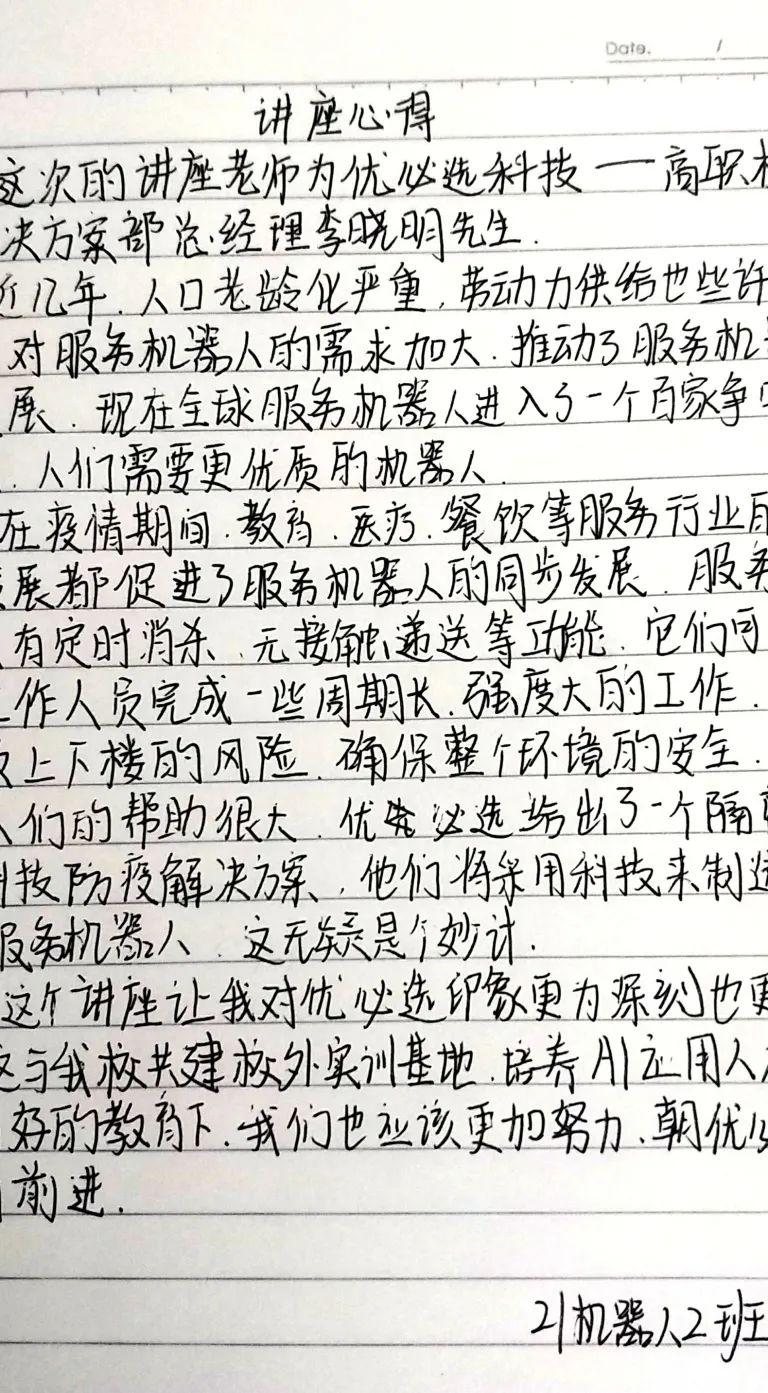 Date. /
讲座心得
这次的讲座老师为优必选科技一高职
决方案部总经理李晓明先生.
近几年.人口老龄化严重,劳动力供给也些许
对服务机器人的需求加大.推动了服务机
展.现在全球服务机器人进入了一个百家争
.人们需要更优质的机器人.
在疫情期间.教育.医疗.餐饮等服务行业的
展都促进了服务机器人的同步发展.服务
有定时消杀.无接触递送等功能.它们可
工作人员完成一些周期长.强度大的工作.
上下楼的风险.确保整个环境的安全.
人们的帮助很大.优必选给出了一个隔离
科技防疫解决方案,他们将采用科技来制造
服务机器人.这无疑是个妙计.
这个讲座让我对优必选印象更为深刻也更
与我校共建校外实训基地.培养AI应用人
好的教育下.我们也应该更加努力.朝优必
前进.
21机器人2班